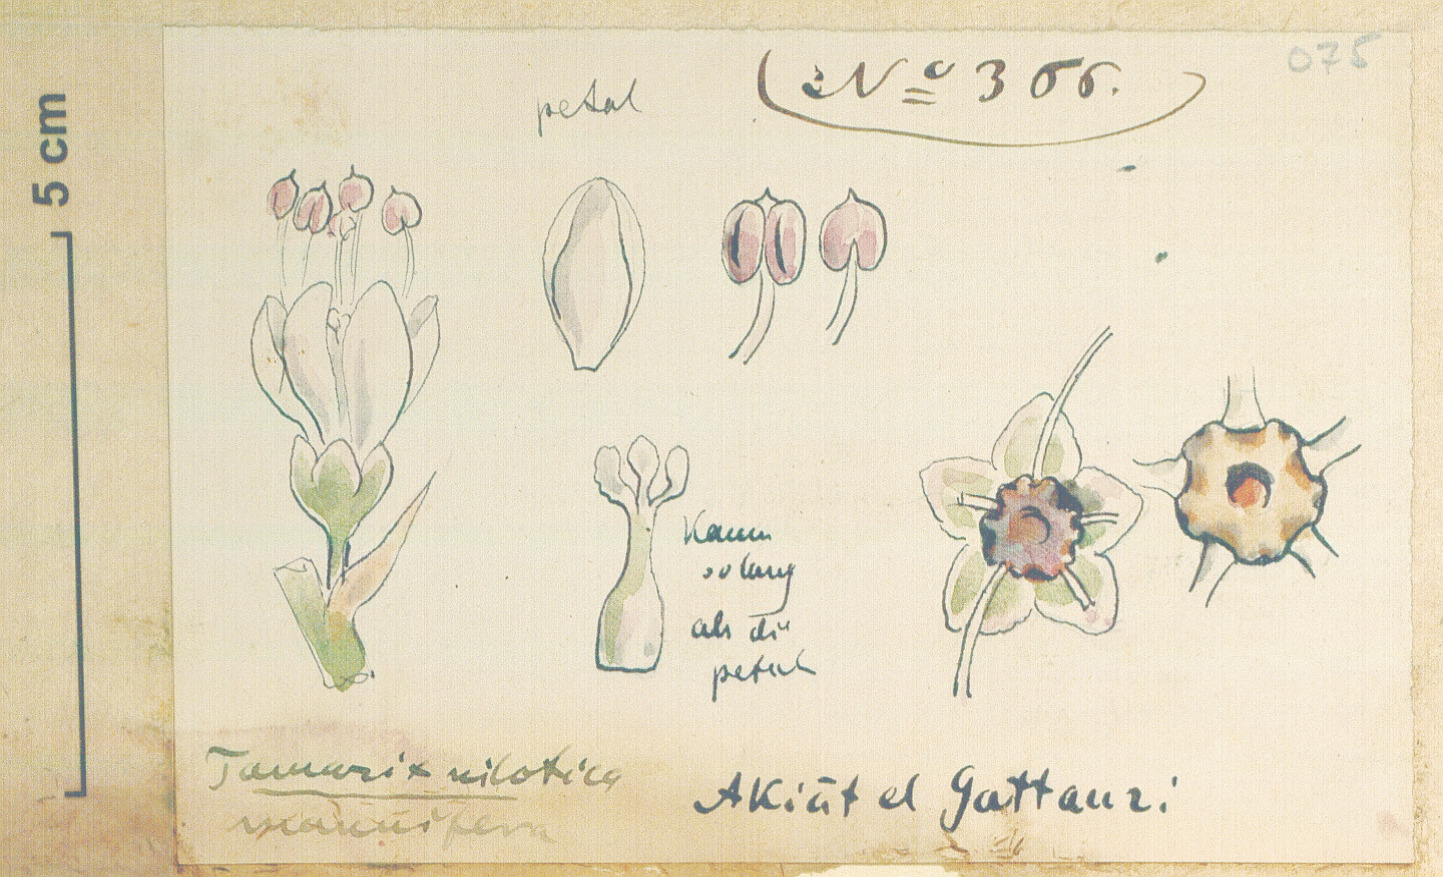 075
(No 366.)
petal
5 cm
Kaum
so lang
als die
petal
Tamarix nilotica
mannifera
Akiüt el Gattauzi